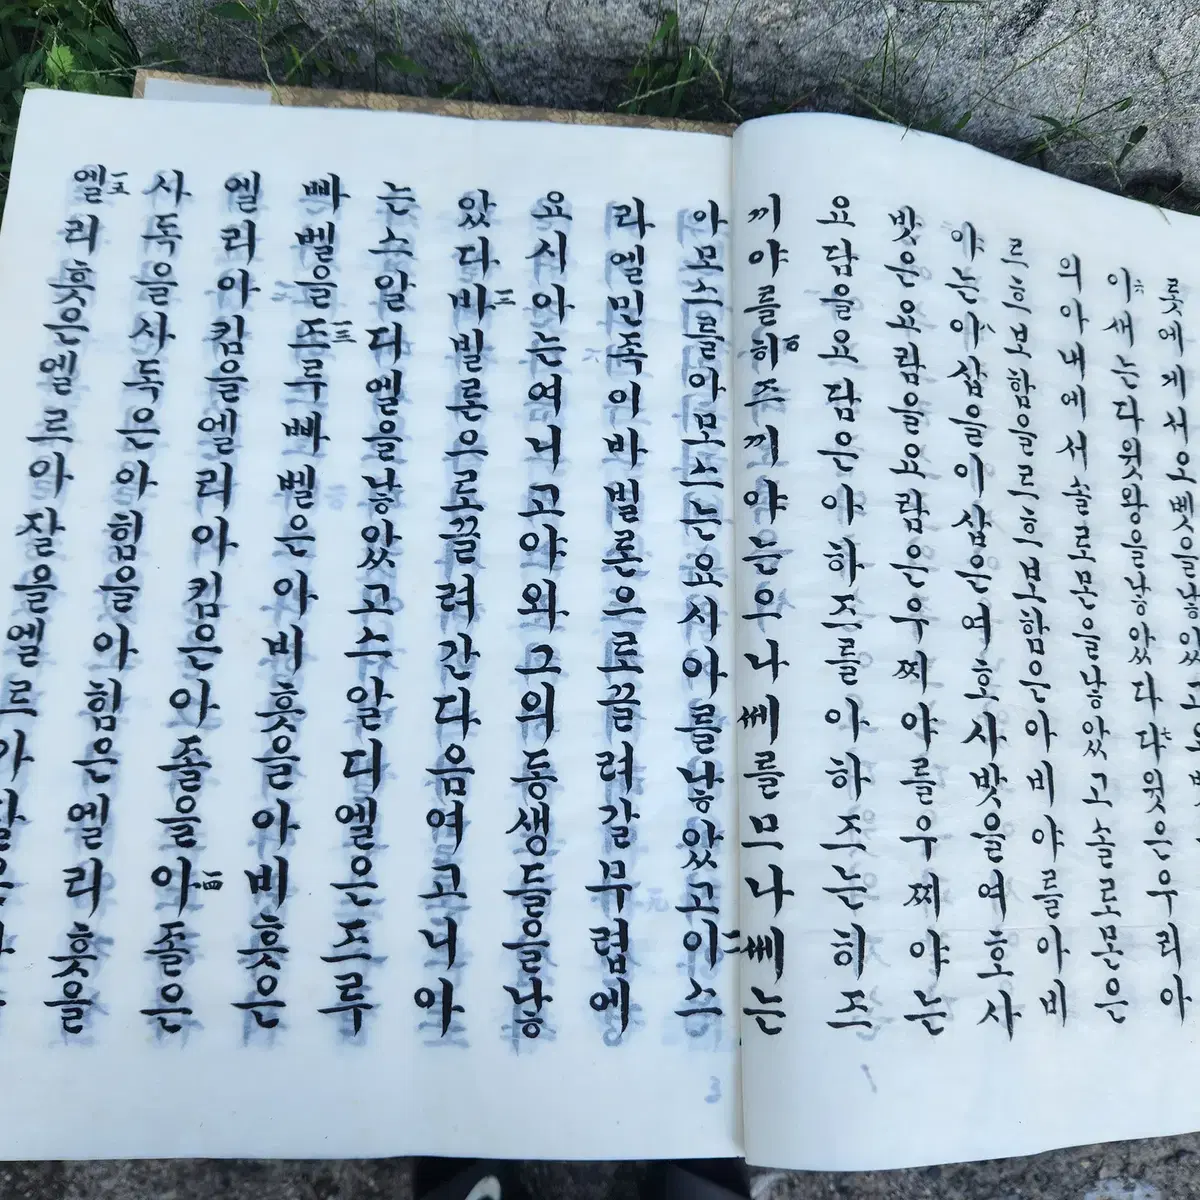 룻에게서오벳을낳았고오벳
이六새는다윗왕을낳았다다七윗은우리아
의아내에서솔로몬을낳았고솔로몬은
르흐보함을르흐보함은아비야를아비
야는아八삽을아삽은여호사밧을여호사
밧은요람을요람은우찌야를우찌야는
요담을요담은아하즈를아하즈는히즈
끼야를히즈끼야는으나쎄를므나쎄는
아모스를아모스는요시아를낳았고이一一스
라엘민족이바빌론으로끌려갈무렵에
요시아는여니고야와그의동생들을낳
았다바一二빌론으로끌려간다음여고니아
는스알디엘을낳았고스알디엘은즈루
빠벨을즈一三루빠벨은아비훗을아비훗은
엘리아킴을엘리아킴은아졸을아一四졸은
사독을사독은아힘을아힘은엘리훗을
엘一五리훗은엘르아잘을엘르